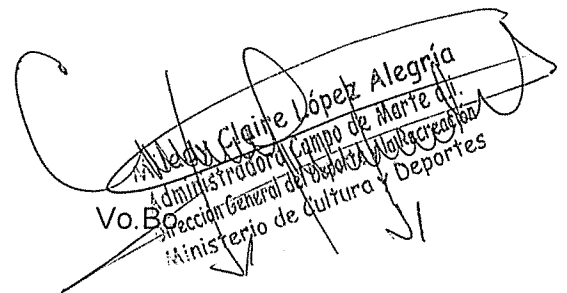 Claire López Alegría
Administradora Campo de Marte a.i.
Dirección General del Deporte y la Recreación
Vo.Bo.
Ministerio de Cultura y Deportes